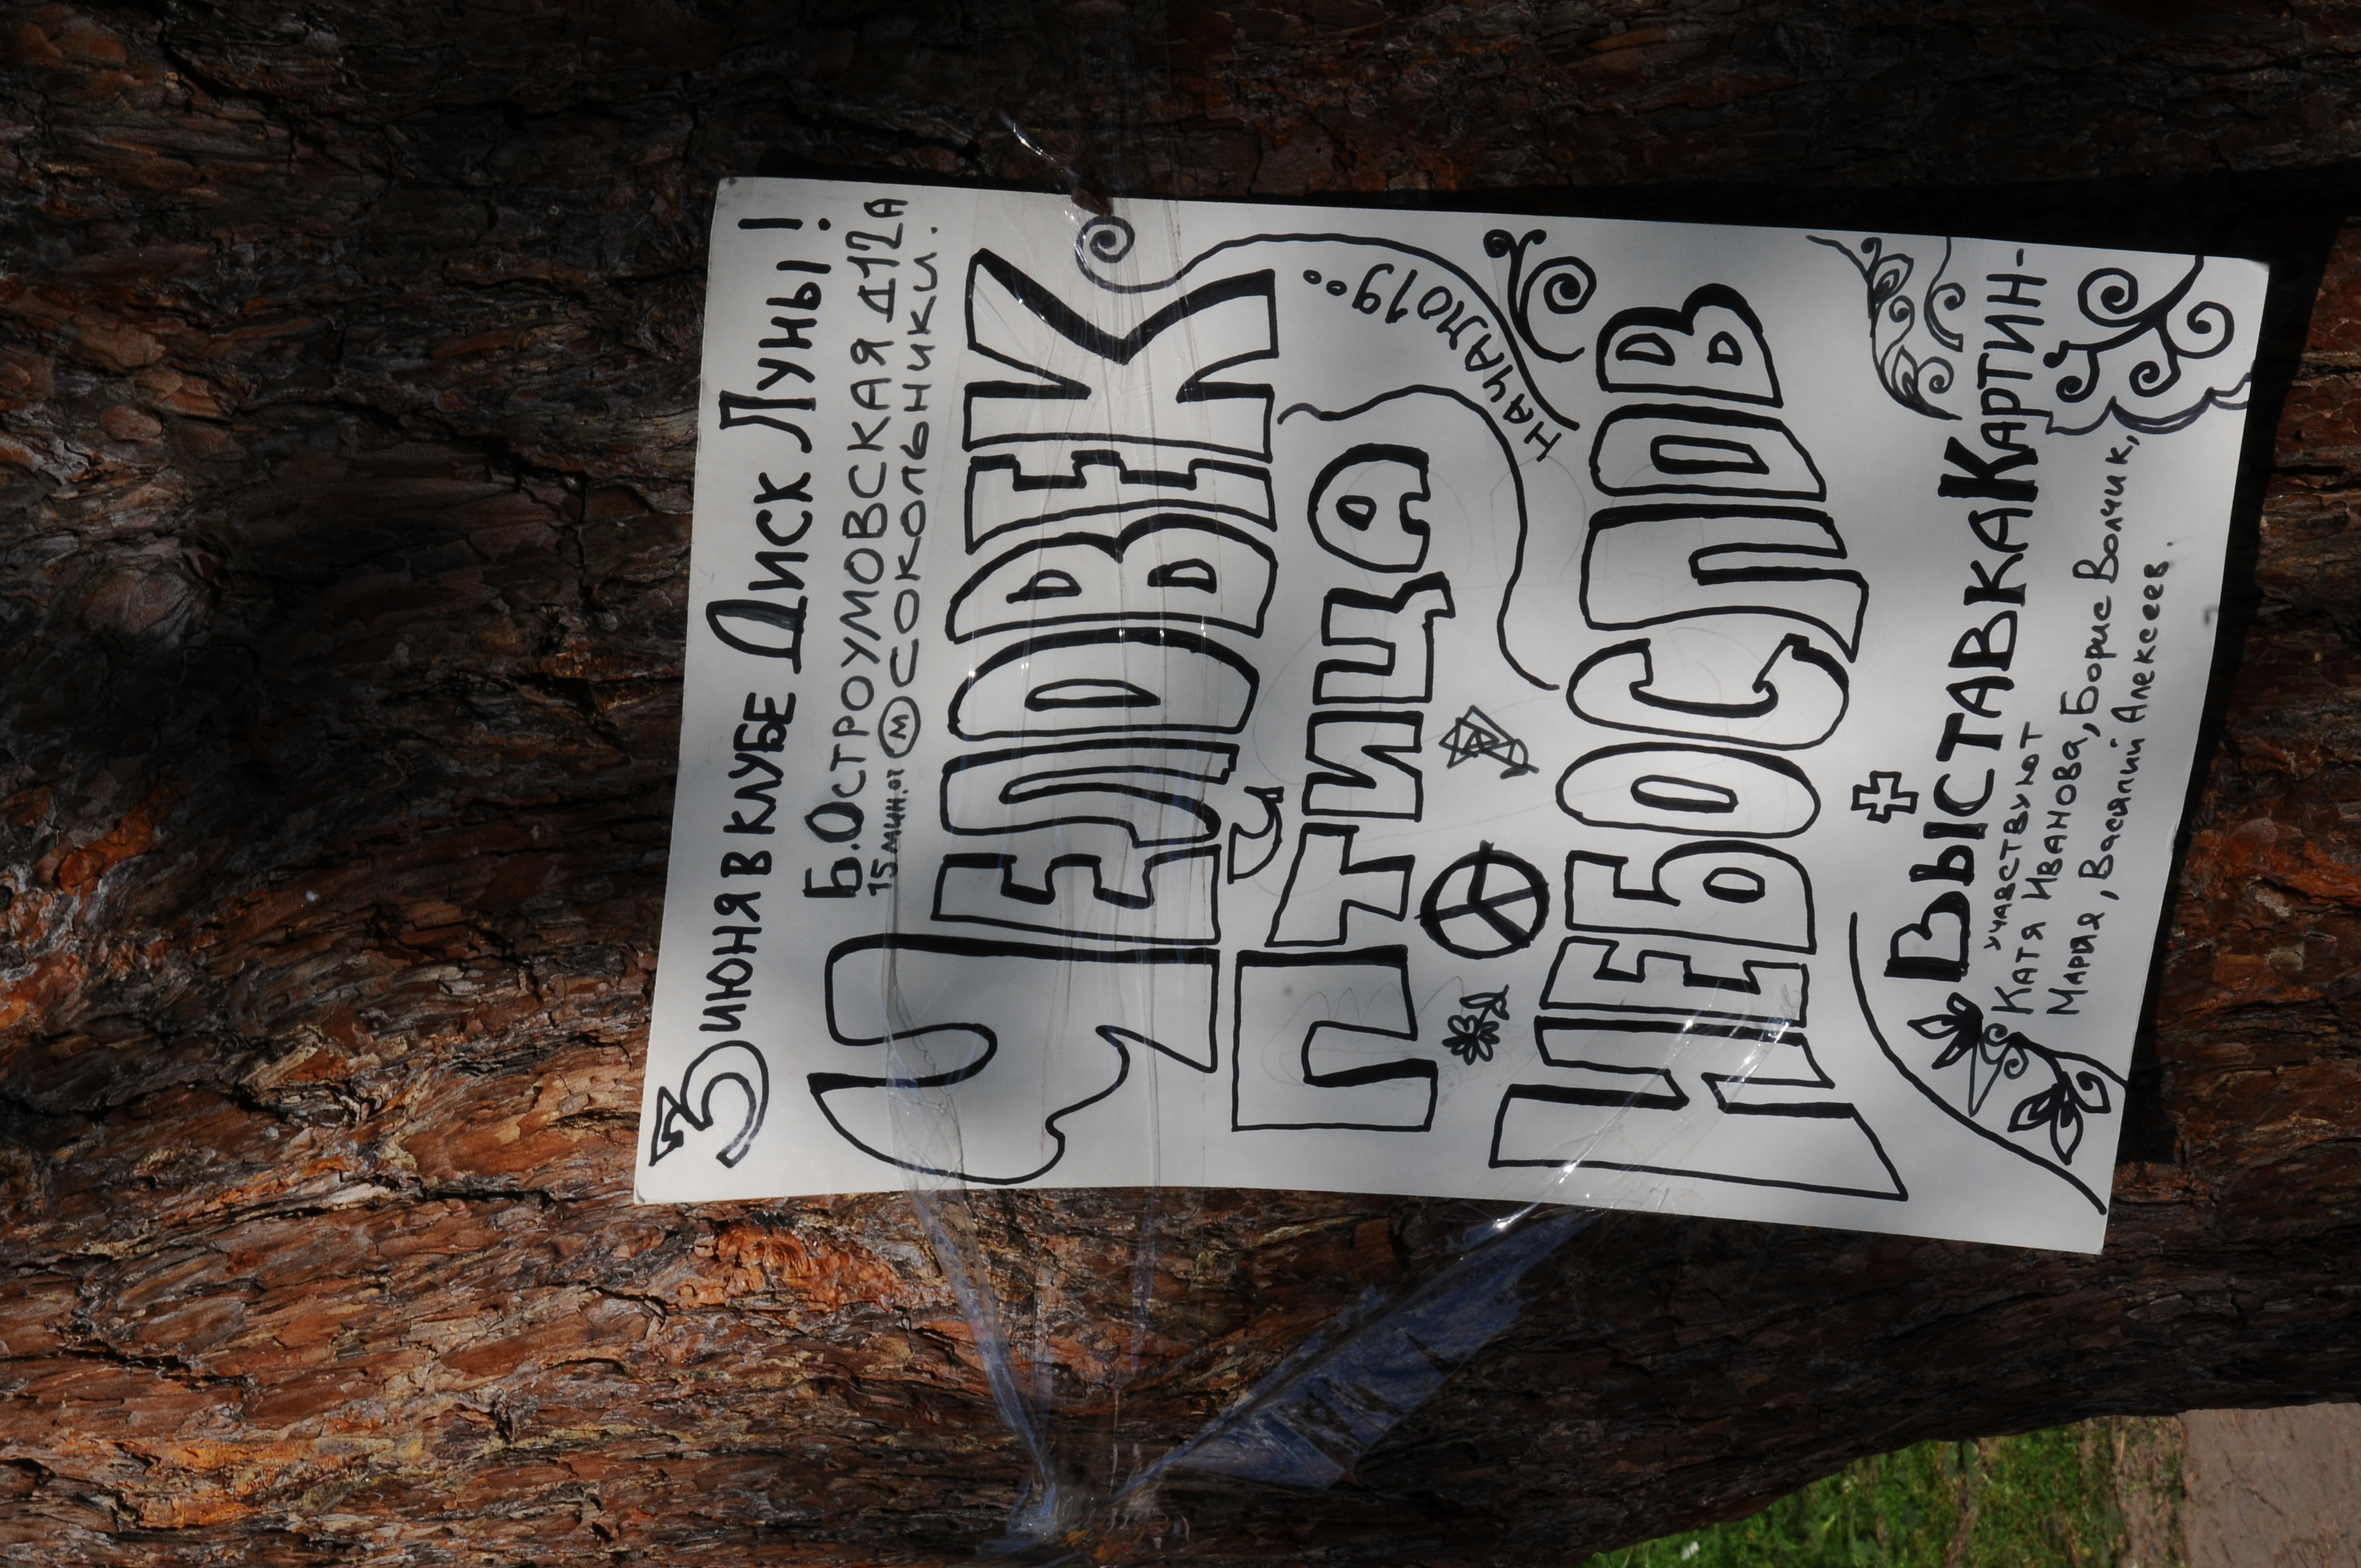 3 ИЮНЯ В КЛУБЕ ДИСК ЛУНЫ!
Б.ОСТРОУМОВСКАЯ Д12А
15 МИН. ОТ М СОКОЛЬНИКИ.
ЧЕЛОВЕК
И
ПТИЦА
НАЧАЛО 19⁰⁰
НЕБОСЛОВ
+
ВЫСТАВКАКАРТИН-
УЧАВСТВУЮТ
КАТЯ ИВАНОВА, БОРИС ВОЛЧИК,
МАРИЯ, ВАСИЛИЙ АЛЕКСЕЕВ.